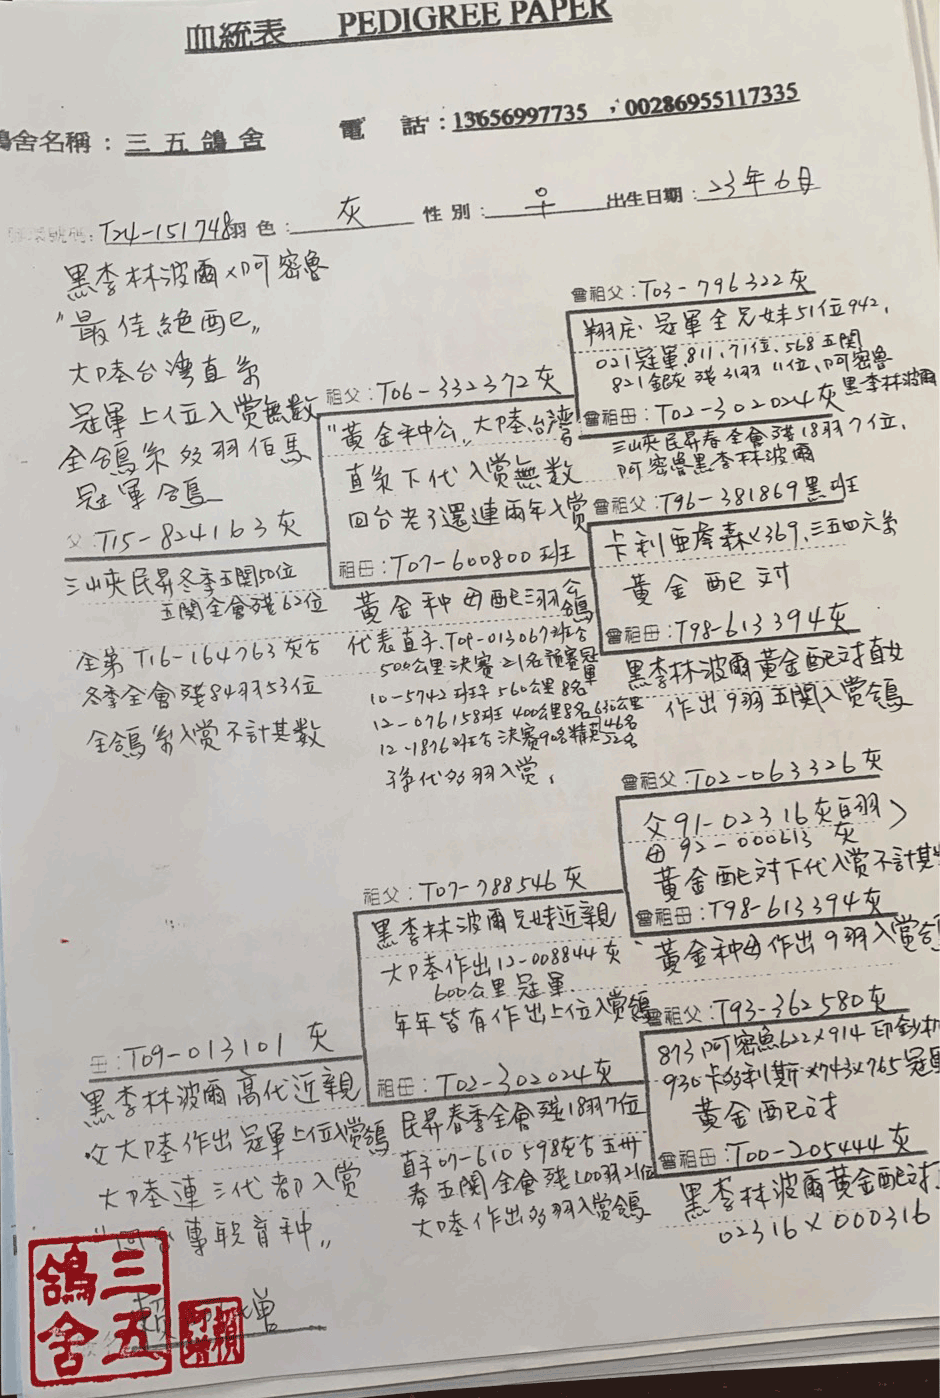 血統表 PEDIGREE PAPER
鴿舍名稱：三五鴿舍 電話：13656997735，00286955117335
T24-151748 羽色：灰 性別：♀ 出生日期：23年6月
黑李林波爾×阿密魯
"最佳絕配"
大陸台灣直系
冠軍上位入賞無數
全鴿系多羽佰馬
冠軍鴿
父：T15-824163灰
三山夾民昇冬季五関50位
五関全會殘62位
全弟T16-164763灰合
冬季全會殘84羽53位
全鴿系入賞不計其數
祖父：T06-332372灰
"黃金种公"大陸台灣
直系下代入賞無數
回台老了還連兩年入賞
祖母：T07-600800班
黃金种母配3羽公鴿
代表直子.T09-013067班合
500公里決賽21名預賽冠軍
10-5742班 560公里8名
12-076158班 400公里8名630公里46名
12-1876班合決賽90名精英52名
淨代多羽入賞.
曾祖父：T03-796322灰
翔庄 冠軍全兄妹51位942,
021冠軍.811,71位.568五関
821銀灰殘31羽11位,阿密魯
曾祖母：T02-302024灰 黑李林波爾
三山夾民昇春全會殘18羽7位,
阿密魯黑李林波爾
曾祖父：T96-381869黑班
卡利亞 ×369.三五四六系
黃金配対
曾祖母：T98-613394灰
黑李林波爾黃金配対直女
作出9羽五関入賞鴿
母：T09-013101灰
黑李林波爾高代近親
父大陸作出冠軍上位入賞鴿
大陸連三代都入賞
專職育种"
祖父：T07-788546灰
黑李林波爾兄妹近親
大陸作出12-008844灰
600公里冠軍
年年皆有作出上位入賞鴿
祖母：T02-302024灰
民昇春季全會殘18羽7位
直子07-610598灰合五卅
春五関全會殘100羽21位
大陸作出多羽入賞鴿
曾祖父：T02-063326灰
父91-02316灰白羽
母92-000613灰
黃金配対下代入賞不計其
曾祖母：T98-613394灰
黃金种母作出9羽入賞鴿
曾祖父：T93-362580灰
873阿密魚622×914印鈔机
930卡多利斯×743×765冠軍
黃金配対
曾祖母：T00-205444灰
黑李林波爾黃金配対
02316×000316
三五鴿舍
賴 增